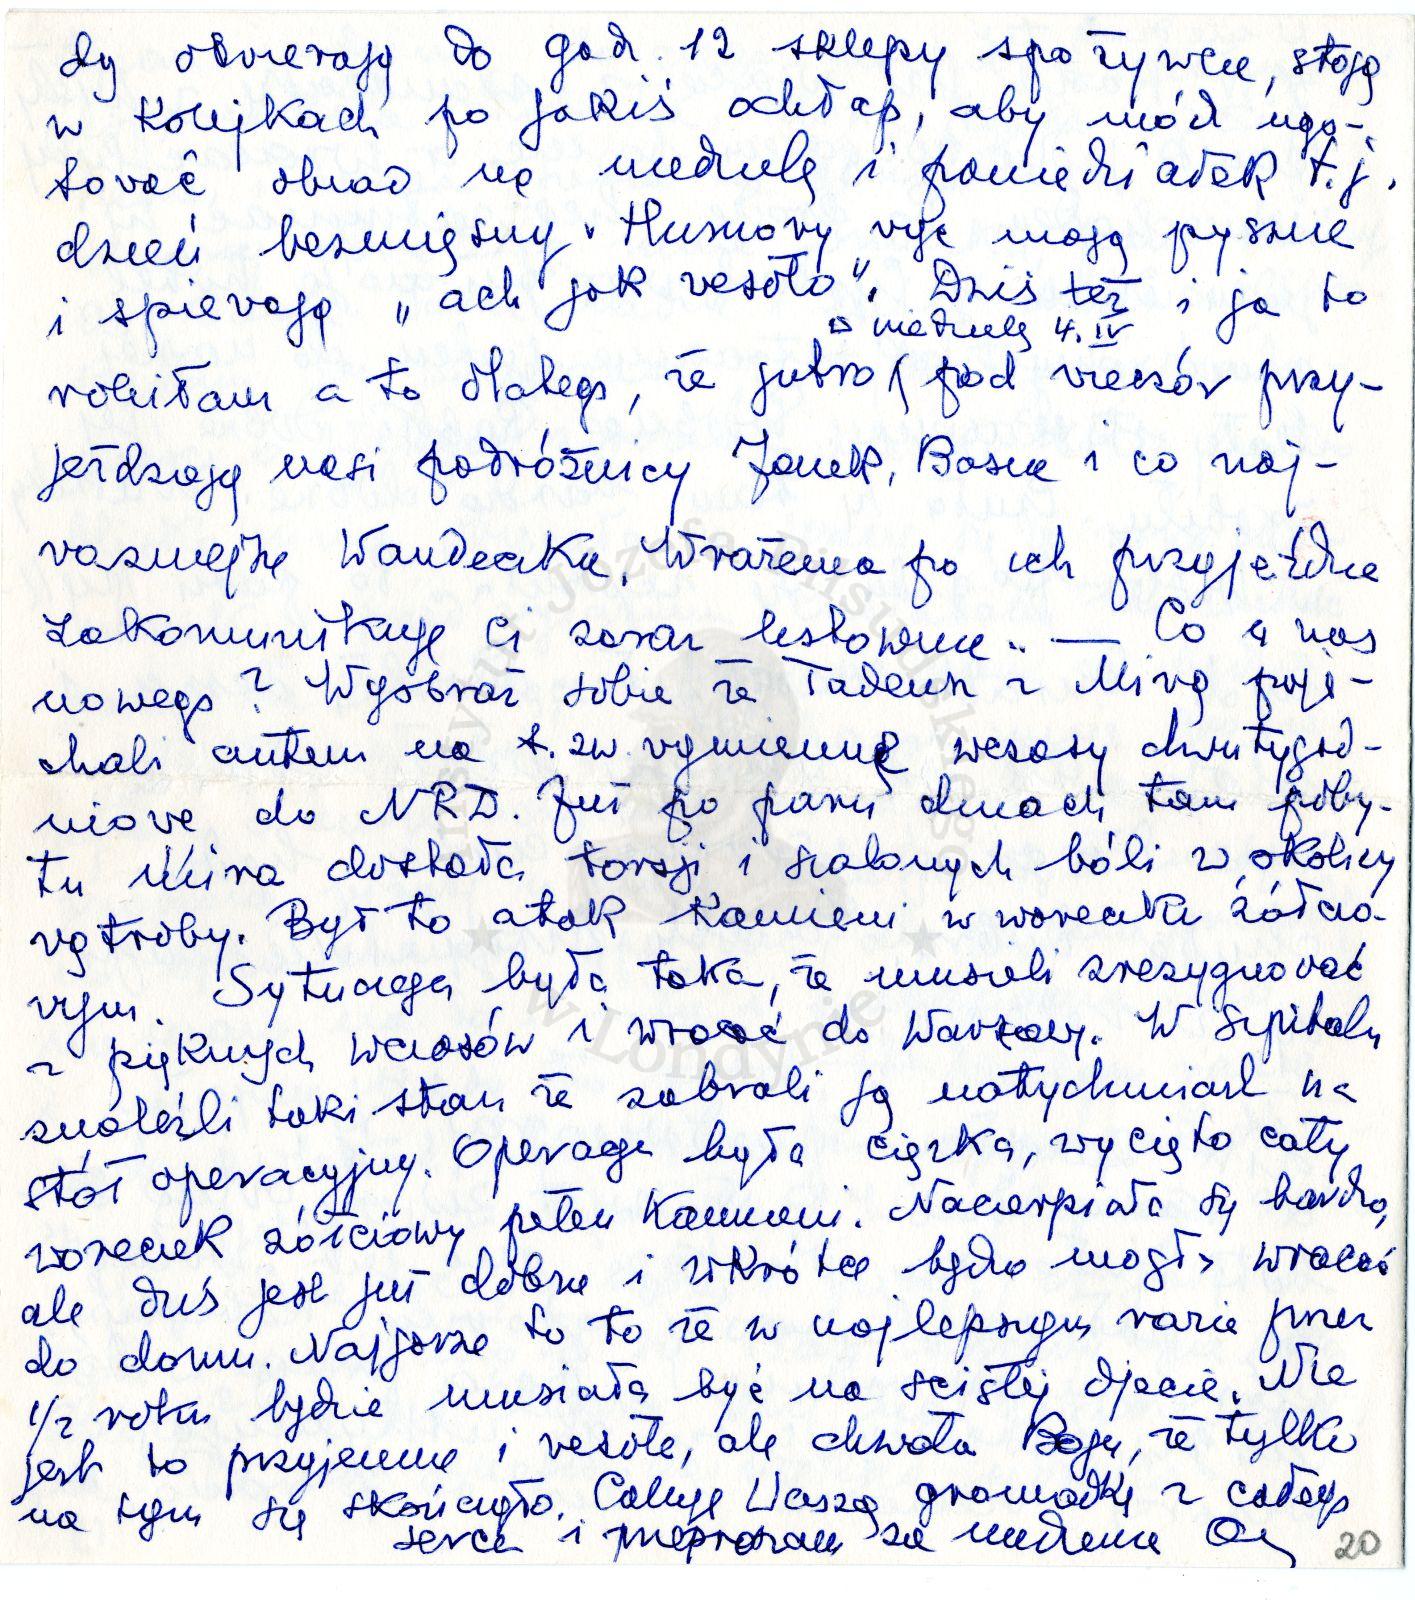 dy otwierają do god. 12 sklepy spożywcze, stoją
w kolejkach po jakiś ochłap, aby móc ugo-
tować obiad na niedzielę i poniedziałek t.j.
dzień bezmięsny. Humory więc mają pyszne
i śpiewają „ach jak wesoło". Dziś też i ja to
w niedzielę 4.IV
robiłam a to dlatego, że jutro ( pod wieczór przy-
jeżdżają nasi podróżnicy Janek, Basia i co naj-
ważniejsze Wandeczka. Wrażenia po ich przyjeździe
zakomunikuję Ci zaraz listownie. — Co u nas
nowego? Wyobraź sobie że Tadeusz z Mirą poje-
chali autem na t. zw. wymienne wczasy dwutygod-
niowe do NRD. Już po paru dniach tam poby-
tu Mira dostała torsji i szalonych bóli w okolicy
wątroby. Był to atak kamieni w woreczku żółcio-
wym. Sytuacja była taka, że musieli zrezygnować
z pięknych wczasów i wracać do Warszawy. W szpitalu
znaleźli taki stan że zabrali ją natychmiast na
stół operacyjny. Operacja była ciężka, wycięto cały
woreczek żółciowy pełen kamieni. Nacierpiała się bardzo,
ale dziś jest już dobrze i wkrótce będzie mogła wracać
do domu. Najgorsze to to że w najlepszym razie przez
1/2 roku będzie musiała być na ścisłej djecie. Nie
jest to przyjemne i wesołe, ale chwała Bogu, że tylko
na tym się skończyło. Całuję Waszą gromadkę z całego
serca i przepraszam za
20
Instytut Józefa Piłsudskiego
w Londynie